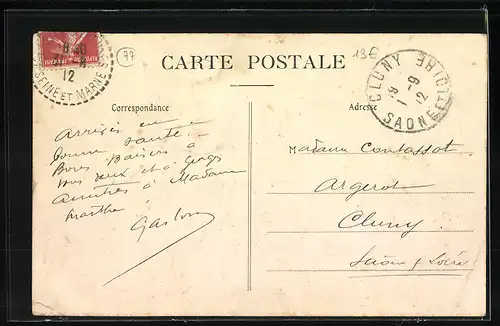 77
13€
CARTE POSTALE
Correspondance
Adresse
SEINE ET MARNE
12
CLUNY
9
1 -9
12
SAONE ET LOIRE
Arrivés en
bonne santé.
Bons Baisers à
vous deux et à
à Madame
Marthe
Gaston
Madame Contassot
Cluny
Saône & Loire